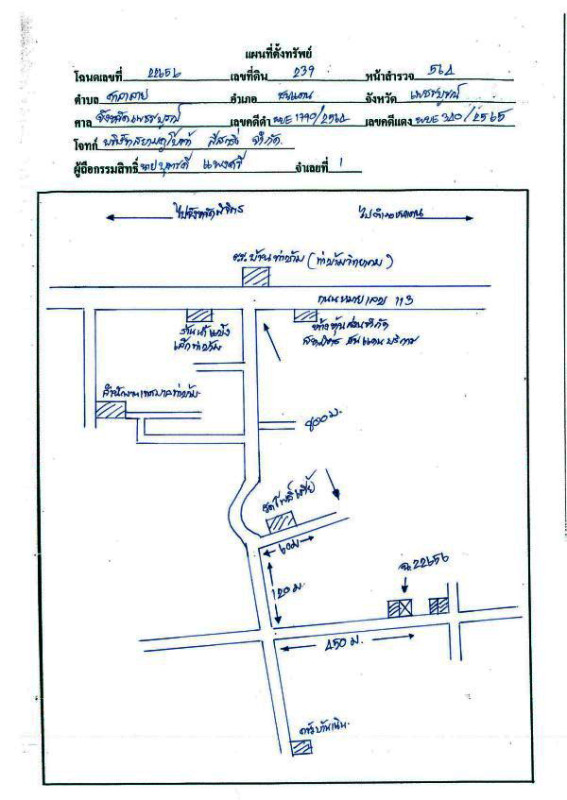 แผนที่ตั้งทรัพย์
โฉนดเลขที่ 22656 เลขที่ดิน 239 หน้าสำรวจ 564
ตำบล ศาลาลาย อำเภอ ชนแดน จังหวัด เพชรบูรณ์
ศาล จังหวัดเพชรบูรณ์ เลขคดีดำ ผบE 1790/2564 เลขคดีแดง ผบE 340/2565
โจทก์ บริษัทสยามคูโบต้า ลีสซิ่ง จำกัด
ผู้ถือกรรมสิทธิ์ จำเลยที่ 1
ไปจังหวัดพิจิตร ไปอำเภอชนแดน
รร.บ้านท่าข้าม (ท่าข้ามวิทยาคม)
ถนนหมายเลข 113
ห้างหุ้นส่วนจำกัด
ชนแดน บริการ
สำนักงานเทศบาลท่าข้าม
800 ม.
วัดโพธิ์เตี้ย
60ม
ฉ.22656
120 ม.
450 ม.